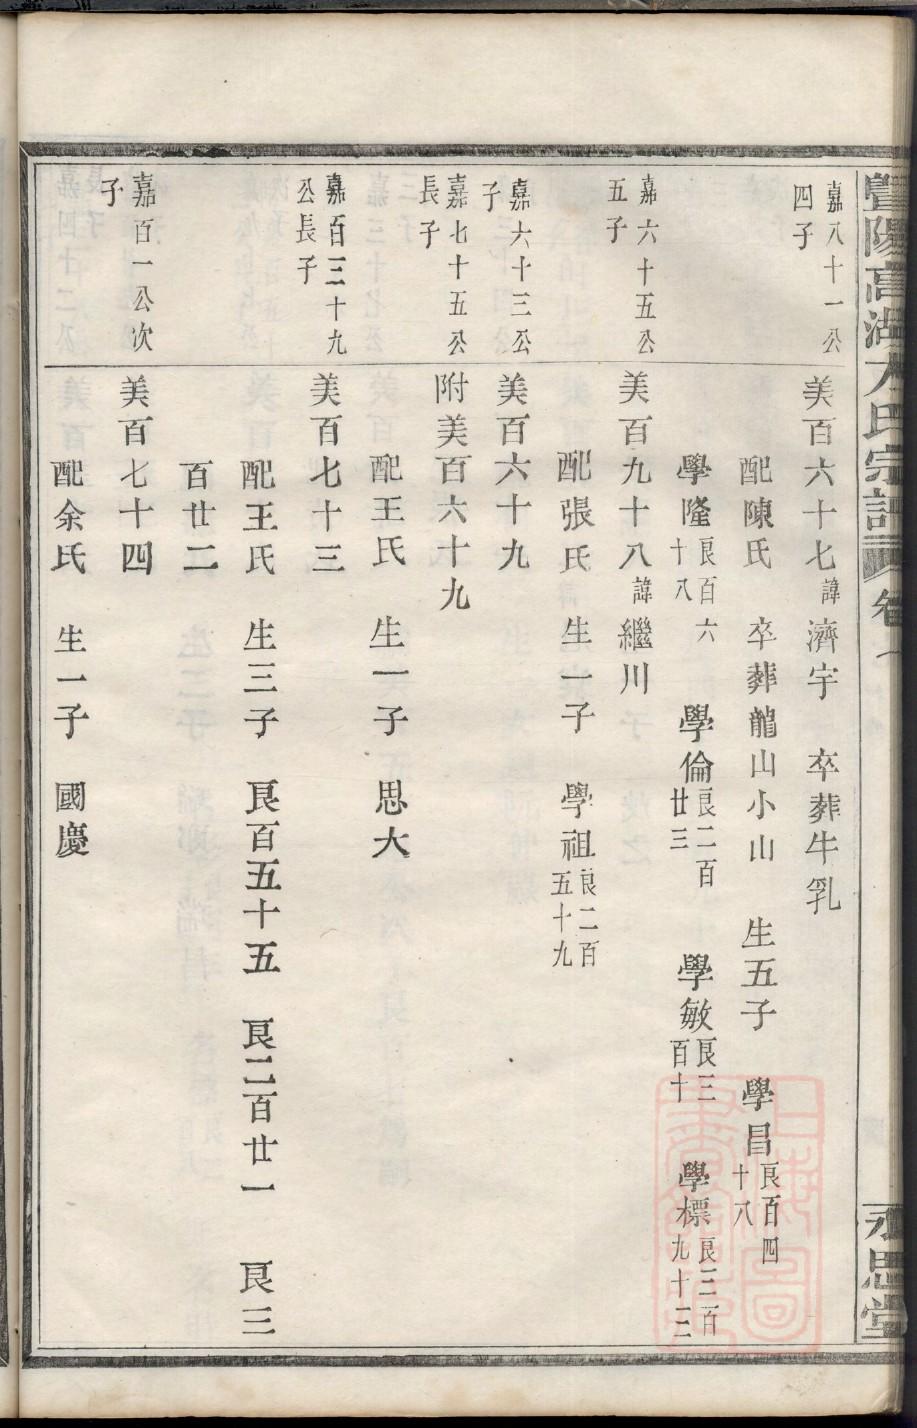 陽高湖方氏宗譜 卷
永思堂
嘉八十一公四子
美百六十七諱濟宇 卒葬牛乳
配陳氏 卒葬龍山小山 生五子 學昌良百四十八
學隆良百六十八 學倫良二百廿三 學敏良三百十 學標良三百九十三
嘉六十五公五子
美百九十八諱繼川
配張氏 生一子 學祖良二百五十九
嘉六十三公子
美百六十九
嘉七十五公長子
附美百六十九
配王氏 生一子 思大
嘉百三十九公長子
美百七十三
配王氏 生三子 良百五十五 良二百廿一 良三
百廿二
嘉百一公次子
美百七十四
配余氏 生一子 國慶